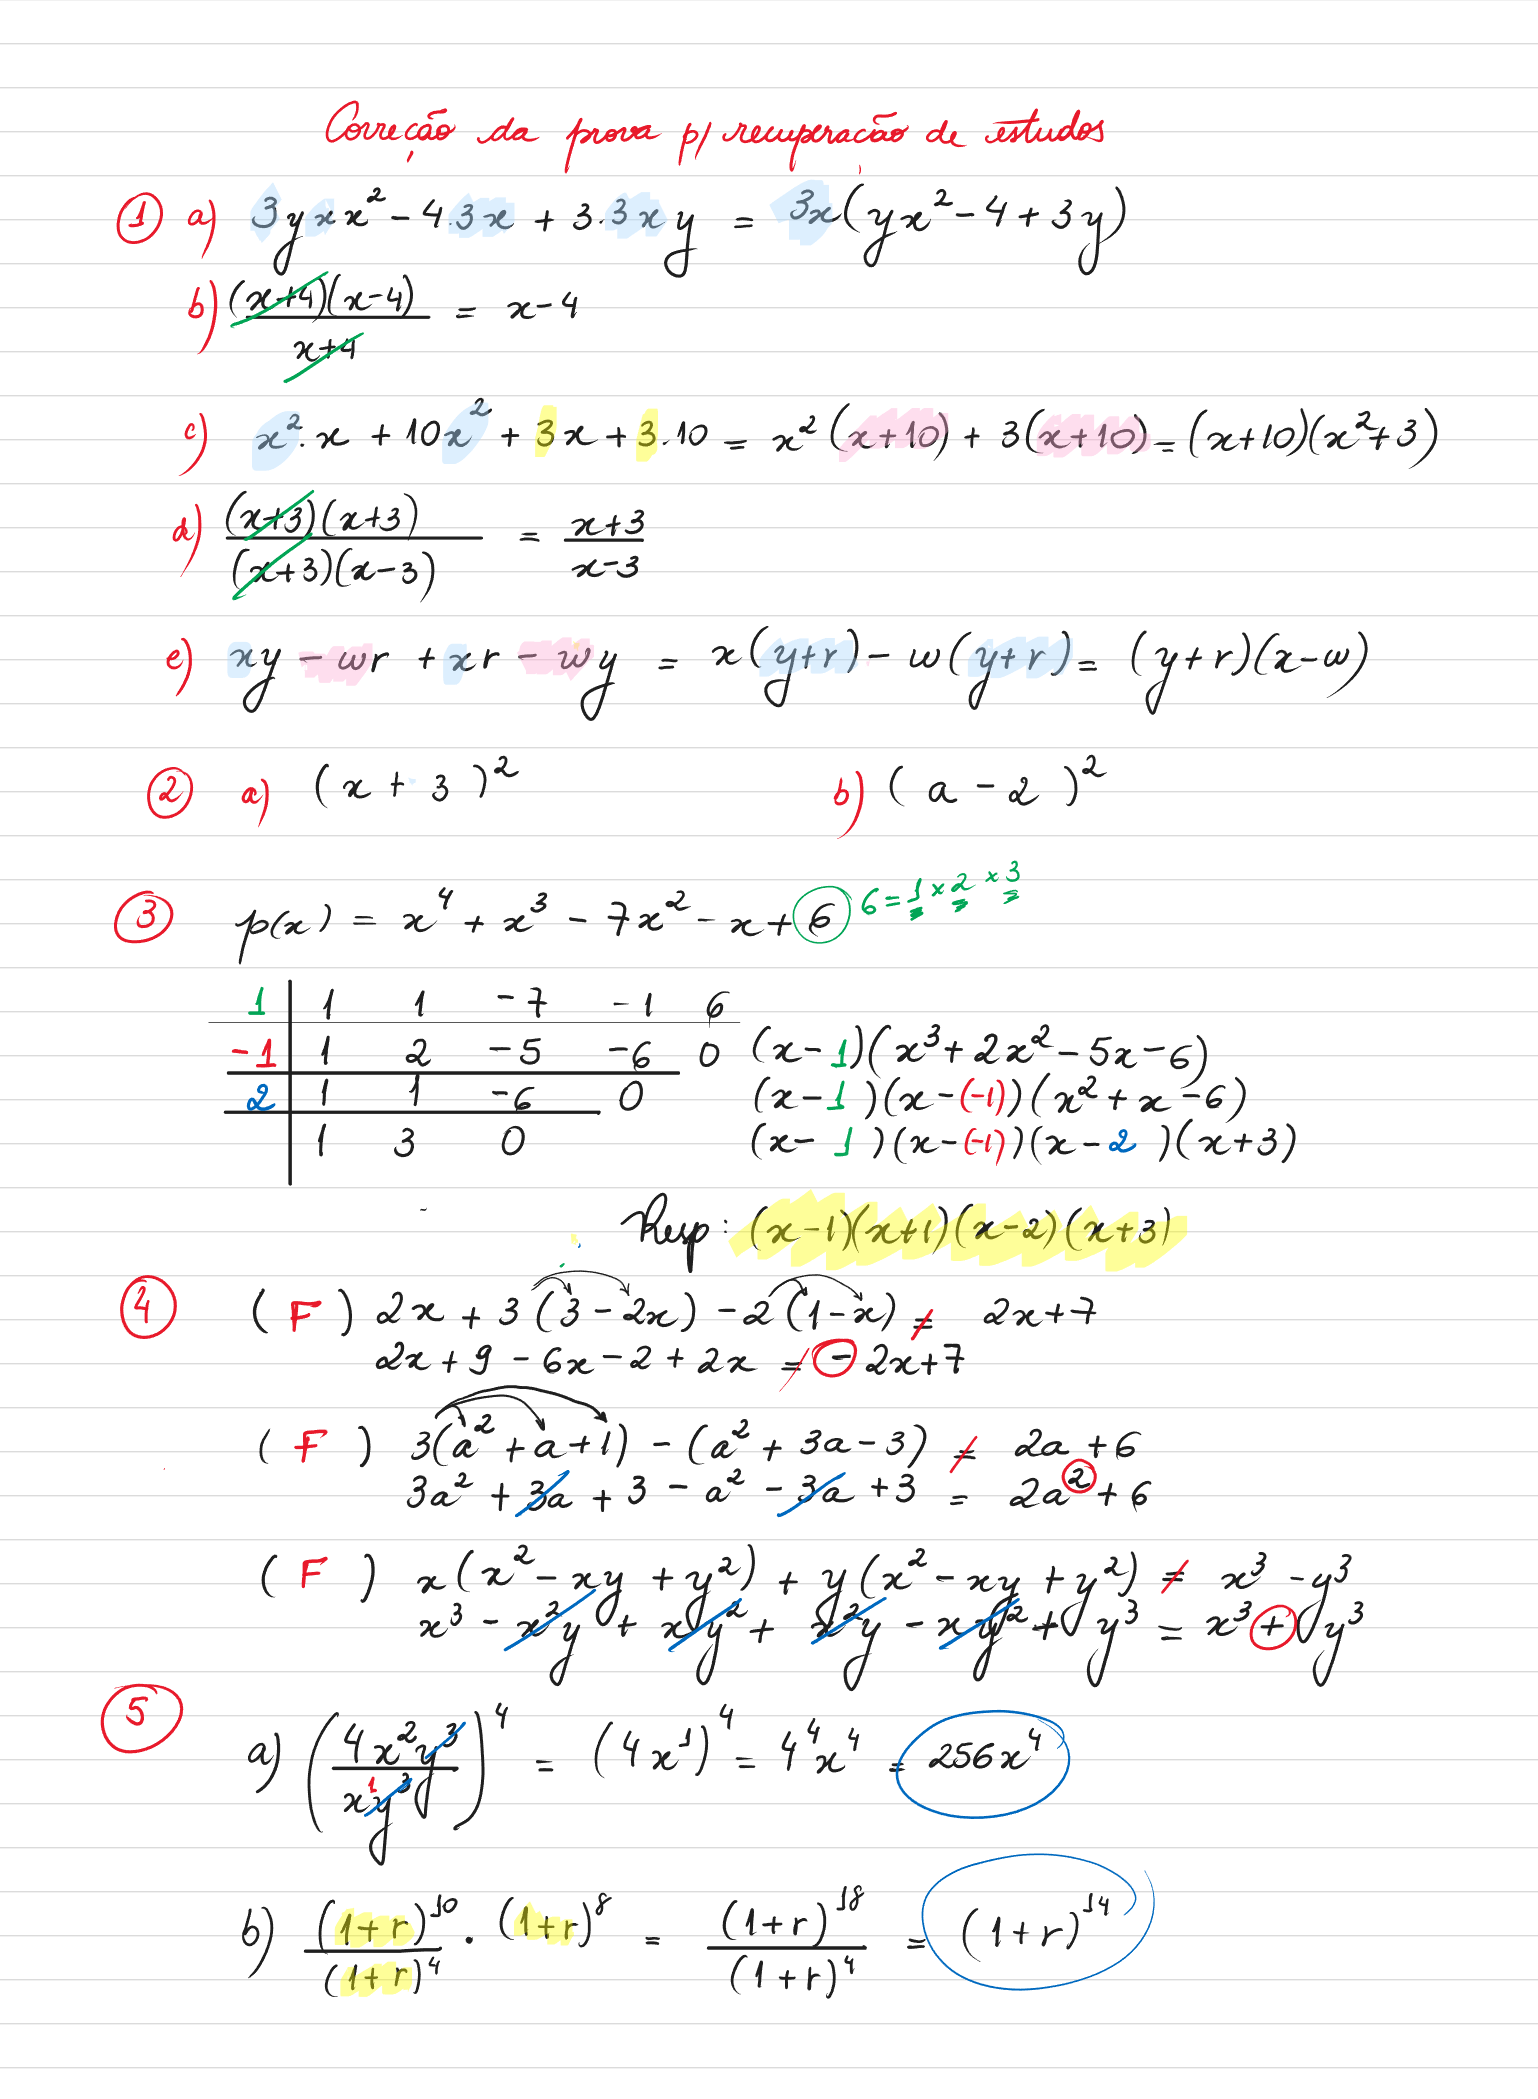 Correção da prova p/ recuperação de estudos
① a) 3yxx² - 4.3x + 3.3xy = 3x(yx² - 4 + 3y)
b) (x+4)(x-4) / x+4 = x-4
c) x².x + 10x² + 3x + 3.10 = x²(x+10) + 3(x+10) = (x+10)(x²+3)
d) (x+3)(x+3) / (x+3)(x-3) = x+3 / x-3
e) xy - wr + xr - wy = x(y+r) - w(y+r) = (y+r)(x-w)
② a) (x + 3)² b) (a - 2)²
③ p(x) = x⁴ + x³ - 7x² - x + 6 6 = 1 × 2 × 3
1 | 1 1 -7 -1 6
-1 | 1 2 -5 -6 0 (x-1)(x³+2x²-5x-6)
2 | 1 1 -6 0 (x-1)(x-(-1))(x²+x-6)
| 1 3 0 (x-1)(x-(-1))(x-2)(x+3)
Resp: (x-1)(x+1)(x-2)(x+3)
④ (F) 2x + 3(3-2x) - 2(1-x) ≠ 2x+7
2x + 9 - 6x - 2 + 2x ≠ -2x+7
(F) 3(a²+a+1) - (a²+3a-3) ≠ 2a+6
3a² + 3a + 3 - a² - 3a + 3 = 2a²+6
(F) x(x²-xy+y²) + y(x²-xy+y²) ≠ x³-y³
x³ - x²y + xy² + x²y - xy² + y³ = x³+y³
⑤ a) (4x²y³ / x¹y³)⁴ = (4x¹)⁴ = 4⁴x⁴ = 256x⁴
b) (1+r)¹⁰ / (1+r)⁴ . (1+r)⁸ = (1+r)¹⁸ / (1+r)⁴ = (1+r)¹⁴